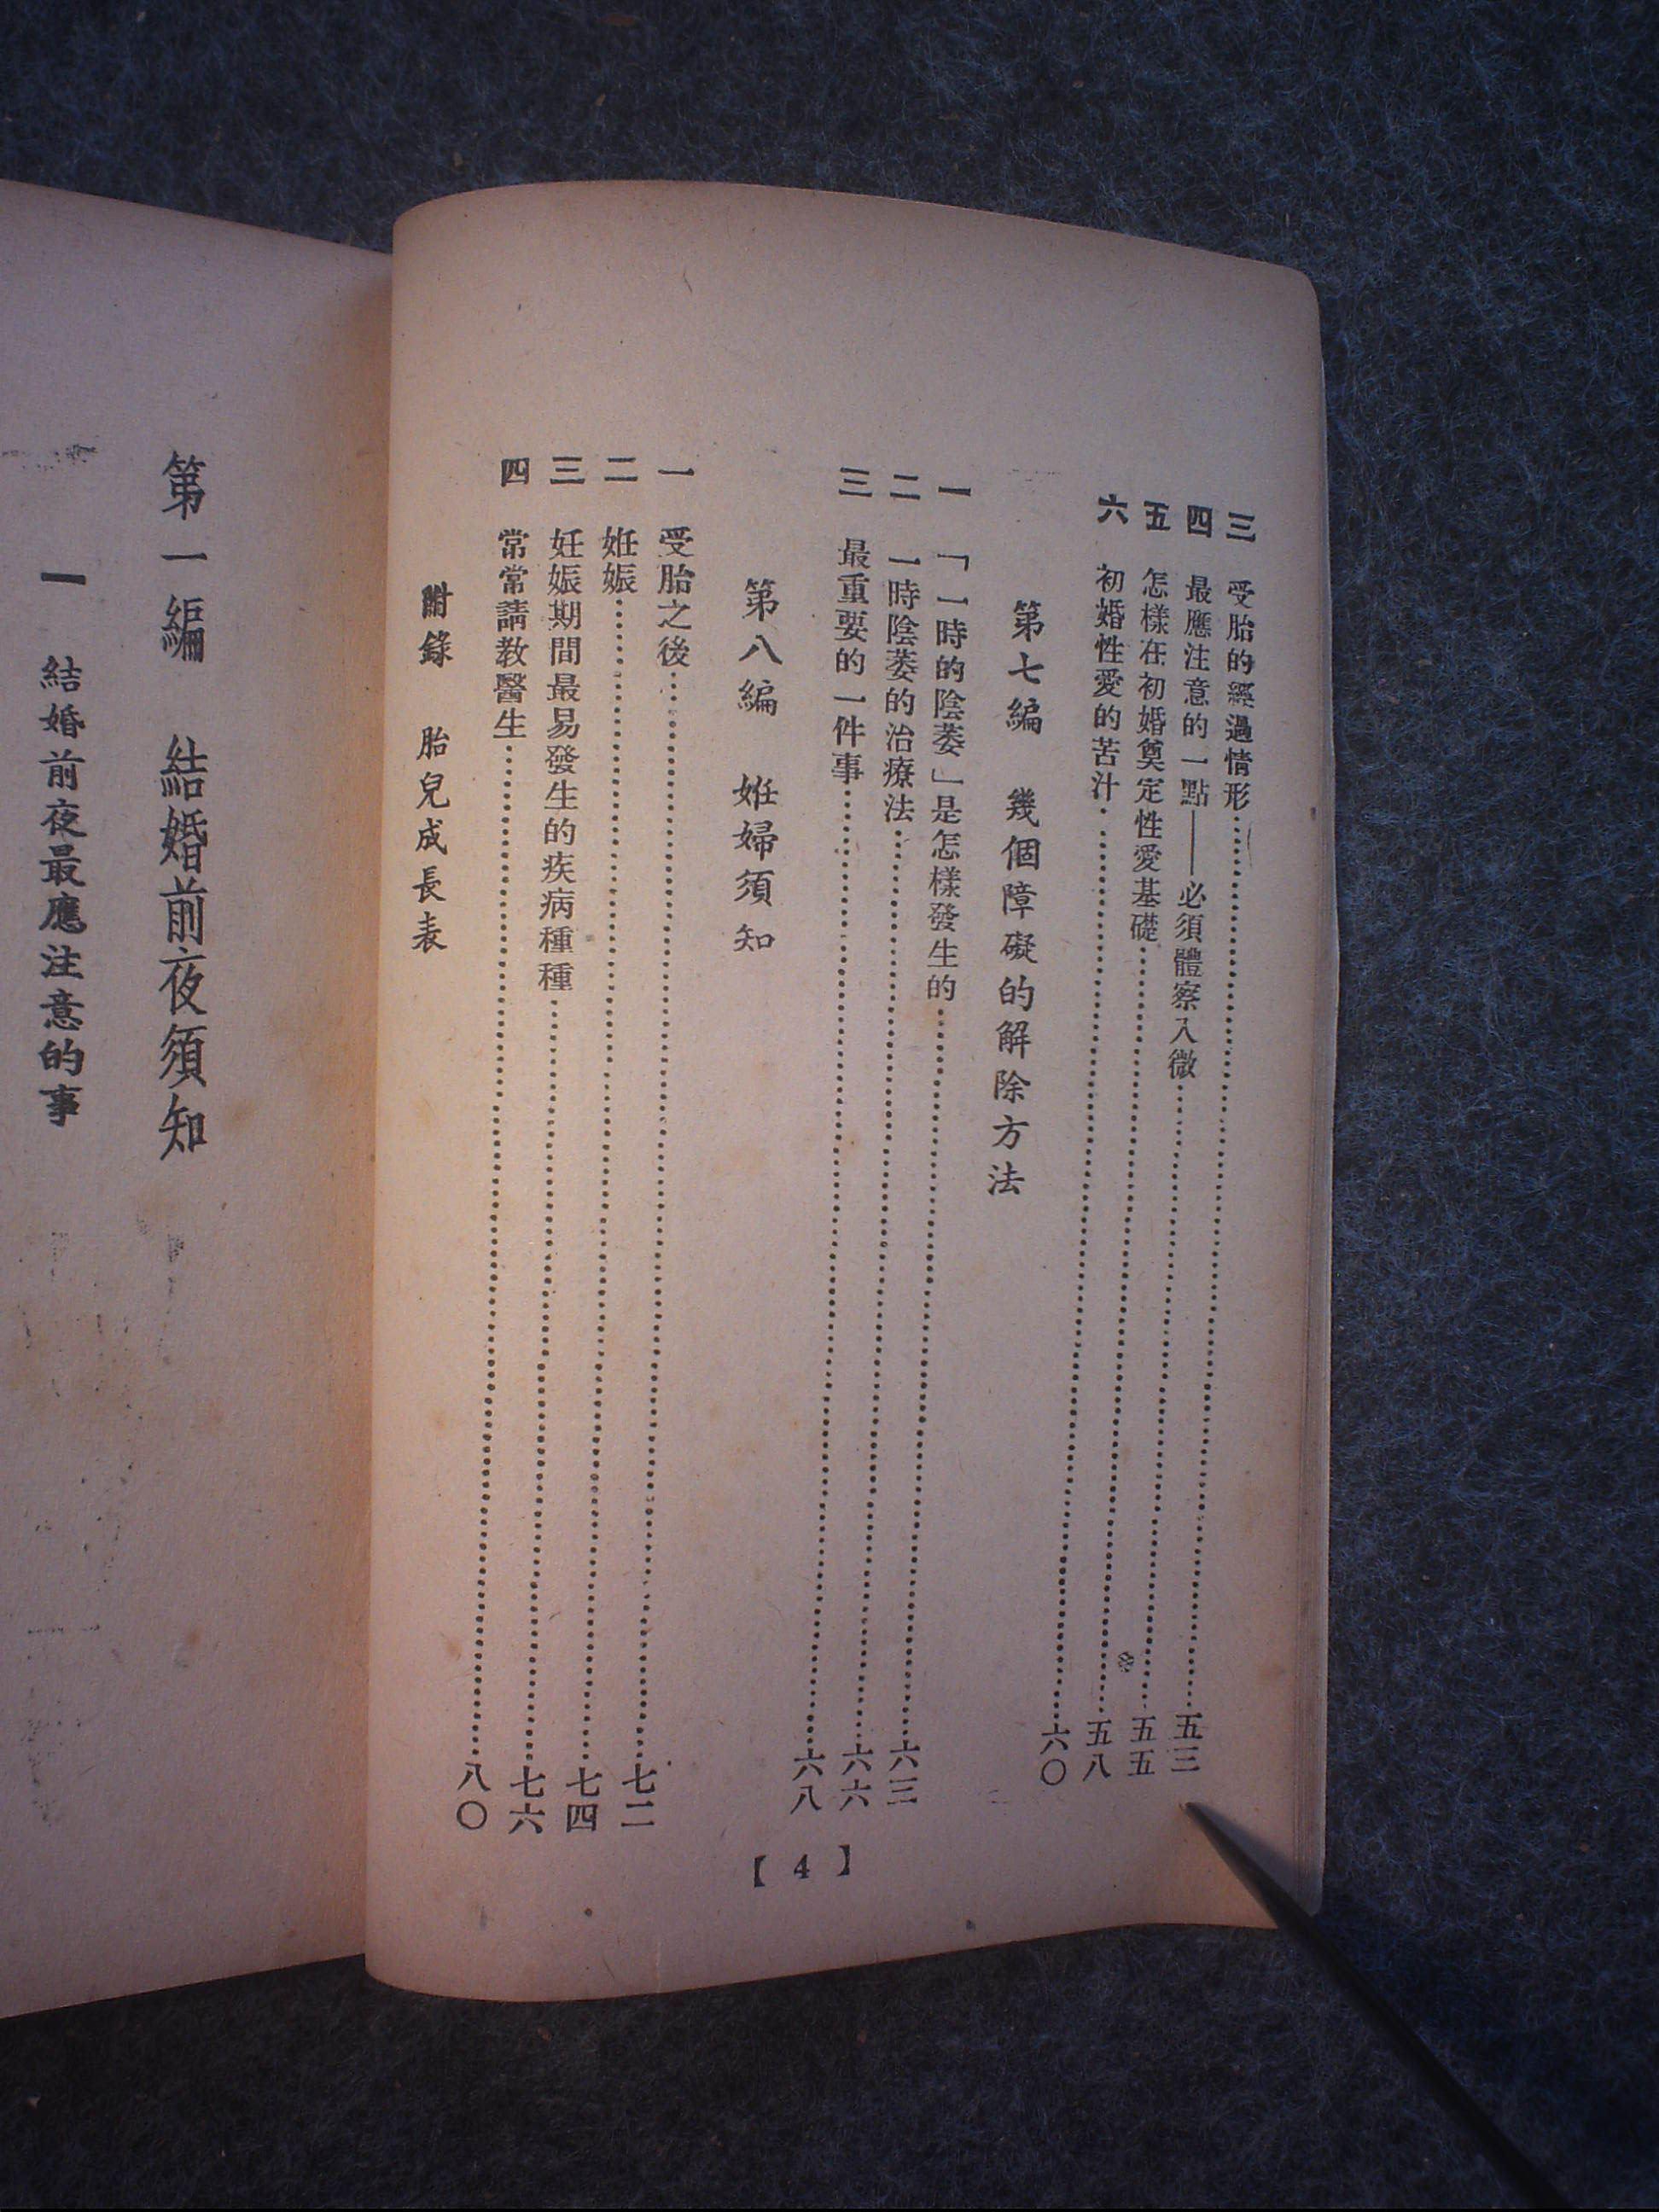 三　受胎的經過情形……五三
四　最應注意的一點——必須體察入微……五五
五　怎樣在初婚奠定性愛基礎……五八
六　初婚性愛的苦汁……六〇
第七編　幾個障礙的解除方法
一　「一時的陰萎」是怎樣發生的……六三
二　一時陰萎的治療法……六六
三　最重要的一件事……六八
第八編　姙婦須知
一　受胎之後……七二
二　姙娠……七四
三　妊娠期間最易發生的疾病種種……七六
四　常常請教醫生……八〇
附錄　胎兒成長表
【4】
第一編　結婚前夜須知
一　結婚前夜最應注意的事